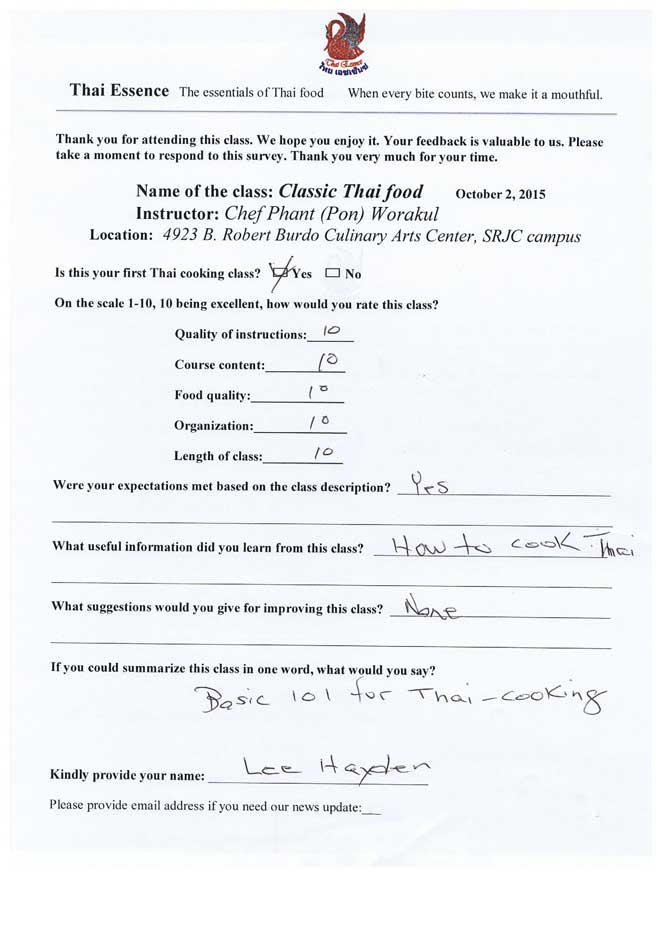 Thai Essence
ไทย เอสเซ้นซ์
Thai Essence The essentials of Thai food When every bite counts, we make it a mouthful.
Thank you for attending this class. We hope you enjoy it. Your feedback is valuable to us. Please
take a moment to respond to this survey. Thank you very much for your time.
Name of the class: Classic Thai food October 2, 2015
Instructor: Chef Phant (Pon) Worakul
Location: 4923 B. Robert Burdo Culinary Arts Center, SRJC campus
Is this your first Thai cooking class? Yes No
On the scale 1-10, 10 being excellent, how would you rate this class?
Quality of instructions: 10
Course content: 10
Food quality: 10
Organization: 10
Length of class: 10
Were your expectations met based on the class description? Yes
What useful information did you learn from this class? How to cook Thai
What suggestions would you give for improving this class? None
If you could summarize this class in one word, what would you say?
Basic 101 for Thai-cooking
Kindly provide your name: Lee Hayden
Please provide email address if you need our news update: